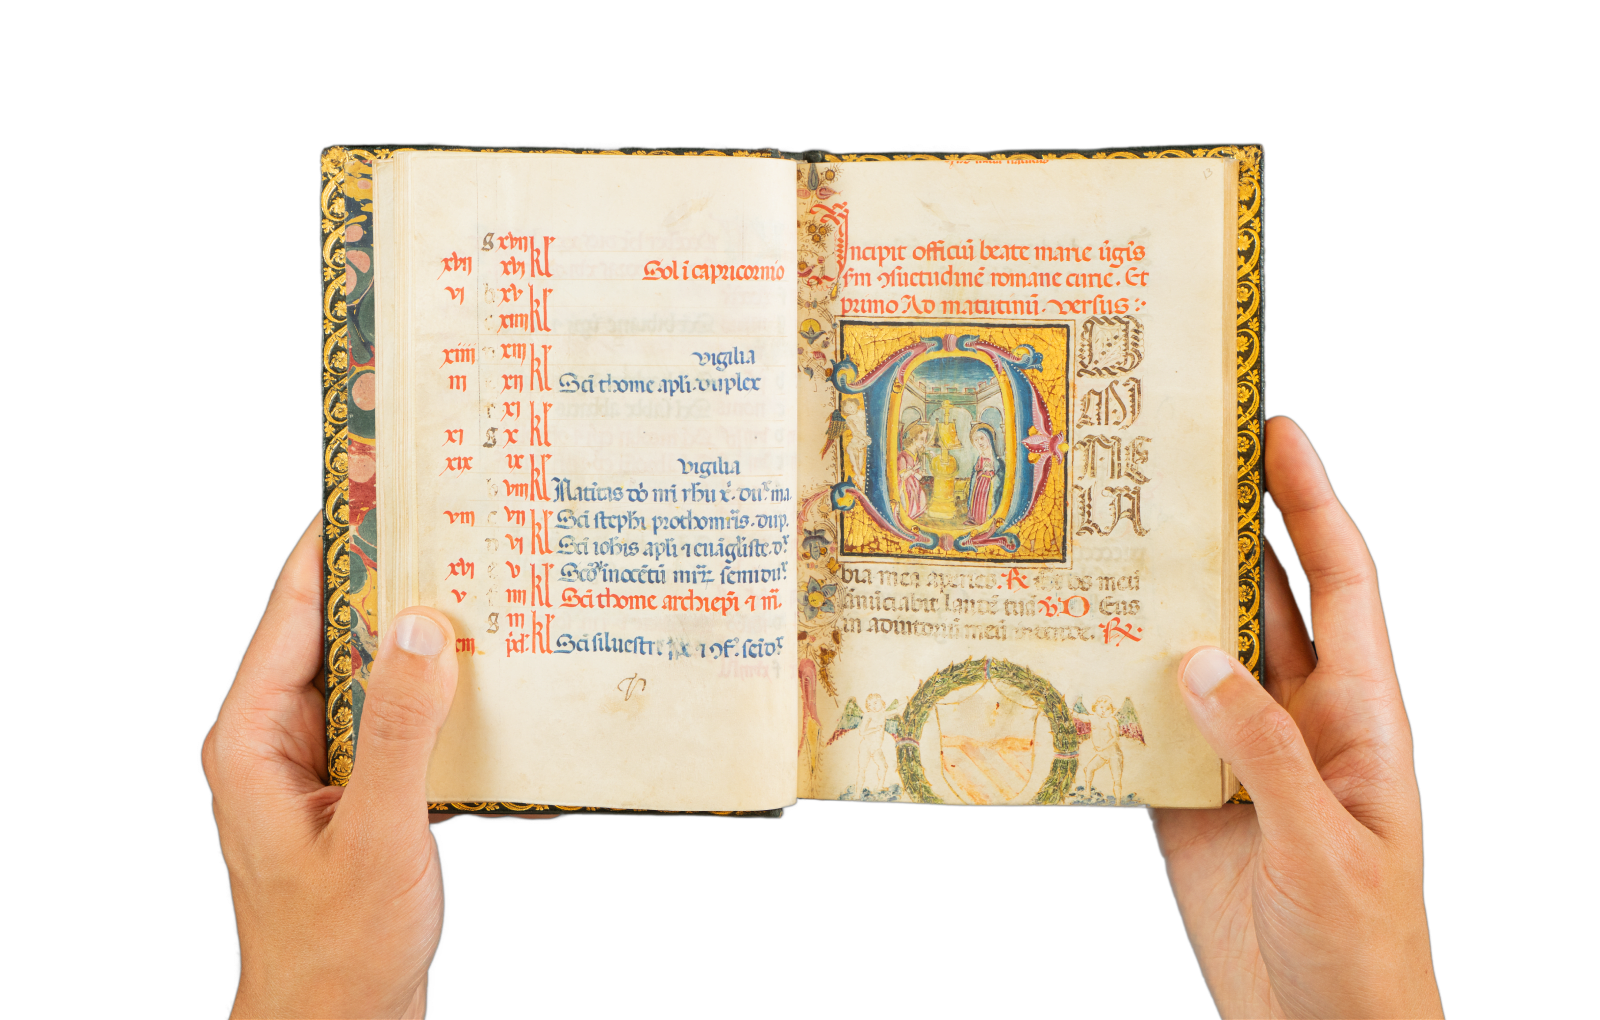 g xvii kl'
xvii xvi Sol i capricornio
vi b xv kl'
c xiiii
xiiii xiii kl' vigilia
iii xii Sci thome apli. duplex
c xi kl'
xi g x
xix ix kl' vigilia
b viii Natitas dni
viii c vii kl' Sci stephi prothomris. dup.
vi Sci iohis apli ⁊ euagliste. d
xvi v kl' Scoʒ inocetu semidu
v iiii Sci thome archiepi ⁊ m.
g iii kl'
xiii pd. Sci siluestr
Incipit officiu beate marie ugis
fm ꝯsuetudine romane curie. Et
primo Ad matutinu. versus:
DO
MI
NE
LA
bia mea aperies. R Et os meu
anuciabit laude tua V D Eus
in adiutoriu meu intende. R.